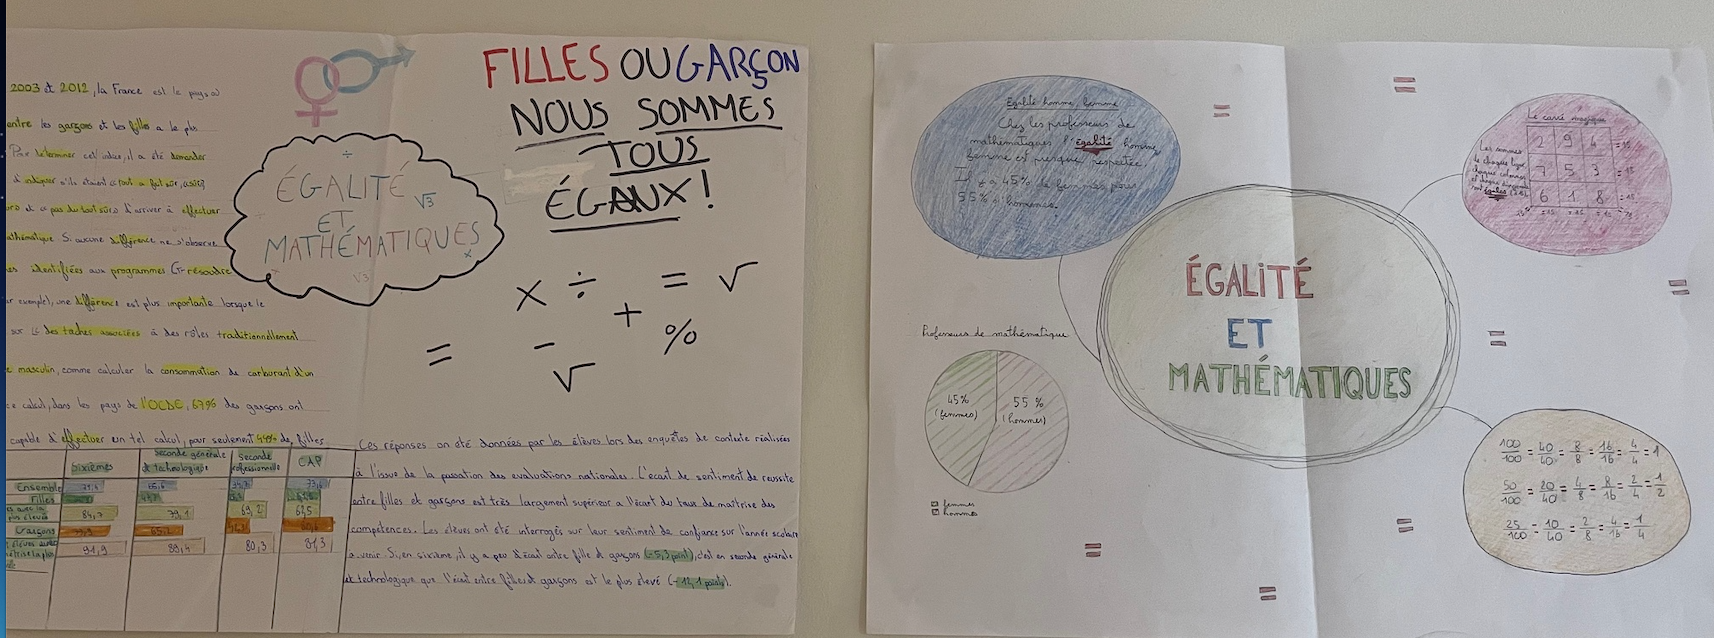 2003 et 2012, la France est le pays où
entre les garçons et les filles a le plus
Pour déterminer cet indice, il a été demander
d'indiquer s'ils étaient « tout a fait sûr,
et « pas du tout sûrs » d'arriver à effectuer
Si aucune différence ne s'observe
identifiées aux programmes (résoudre
exemple), une différence est plus importante lorsque le
sur des taches associées à des rôles traditionnellement
masculin, comme calculer la consommation de carburant d'un
ce calcul, dans les pays de l'OCDE, 67% des garçons ont
capable d'effectuer un tel calcul, pour seulement de filles
÷
ÉGALITÉ
√3
ET
MATHÉMATIQUES
√3 x
FILLES OU GARÇON
NOUS SOMMES
TOUS
ÉGAUX !
x ÷ = √
+
= - %
√
Sixièmes
seconde générale
et technologique
Seconde
professionnelle
CAP
Ensemble
Filles
84,7 79,1 69,2 62,5
Garçons
91,9 89,4 80,3 81,3
Ces réponses on été données par les élèves lors des enquêtes de contexte réalisées
à l'issue de la passation des evaluations nationales. L'écart de sentiment de reussite
entre filles et garçons est très largement supérieur a l'écart du taux de maîtrise des
competences. Les élèves ont été interrogés sur leur sentiment de confiance sur l'année scolaire
a venir. Si, en sixième, il y a peu d'écart entre fille et garçons (-5,3 point), c'est en seconde générale
et technologique que l'écart entre filles et garçons est le plus élevé (-12,1 points).
Egalité homme, femme
Chez les professeurs de
mathématiques l'égalité homme,
femme est presque respectée.
Il y a 45% de femmes pour
55% d'hommes.
Professeurs de mathématique
45%
(femmes)
55 %
(hommes)
femmes
hommes
ÉGALITÉ
ET
MATHÉMATIQUES
Le carré magique
Les sommes
de chaque ligne,
chaque colonne
et chaque diagonale
sont égales
2 9 4 = 15
7 5 3 = 15
6 1 8 = 15
100/100 = 40/40 = 8/8 = 16/16 = 4/4 = 1
50/100 = 20/40 = 4/8 = 8/16 = 2/4 = 1/2
25/100 = 10/40 = 2/8 = 4/16 = 1/4